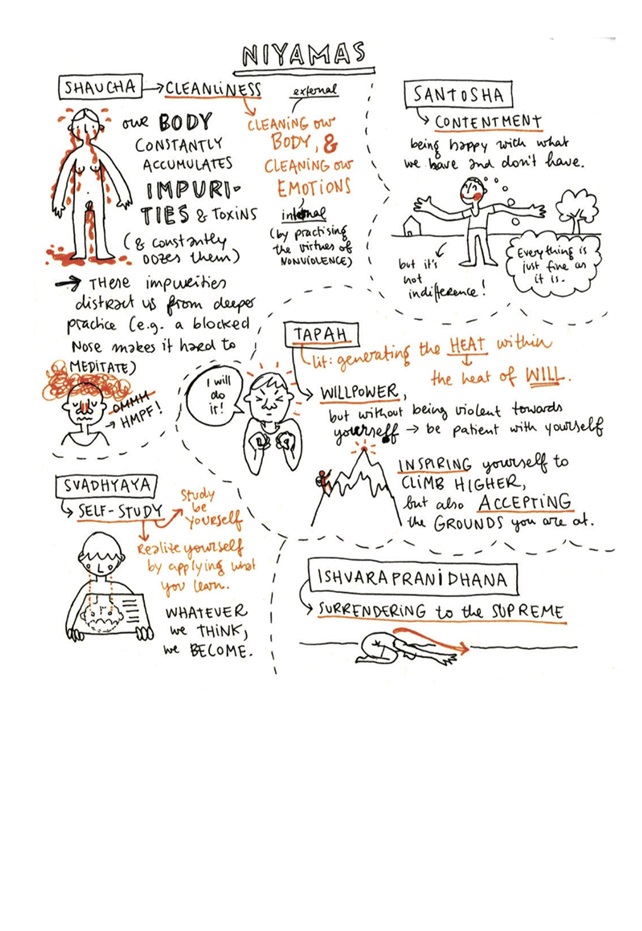 NIYAMAS
SHAUCHA → CLEANLINESS
our BODY
CONSTANTLY
ACCUMULATES
IMPURI-
TIES & TOXINS
(& constantly
oozes them)
external
CLEANING our
BODY, &
CLEANING our
EMOTIONS
internal
(by practising
the virtues of
NONVIOLENCE)
→ These impurities
distract us from deeper
practice (e.g. a blocked
Nose makes it hard to
MEDITATE)
OMMH
→ HMPF!
SANTOSHA
CONTENTMENT
being happy with what
we have and don't have.
but it's
not
indifference!
Everything is
just fine as
it is.
TAPAH
lit: generating the HEAT within
the heat of WILL.
I will
do it!
WILLPOWER,
but without being violent towards
yourself → be patient with yourself
INSPIRING yourself to
CLIMB HIGHER,
but also ACCEPTING
the GROUNDS you are at.
SVADHYAYA
SELF-STUDY
Study
be
yourself
Realize yourself
by applying what
you learn.
WHATEVER
we THINK,
we BECOME.
ISHVARAPRANIDHANA
SURRENDERING to the SUPREME